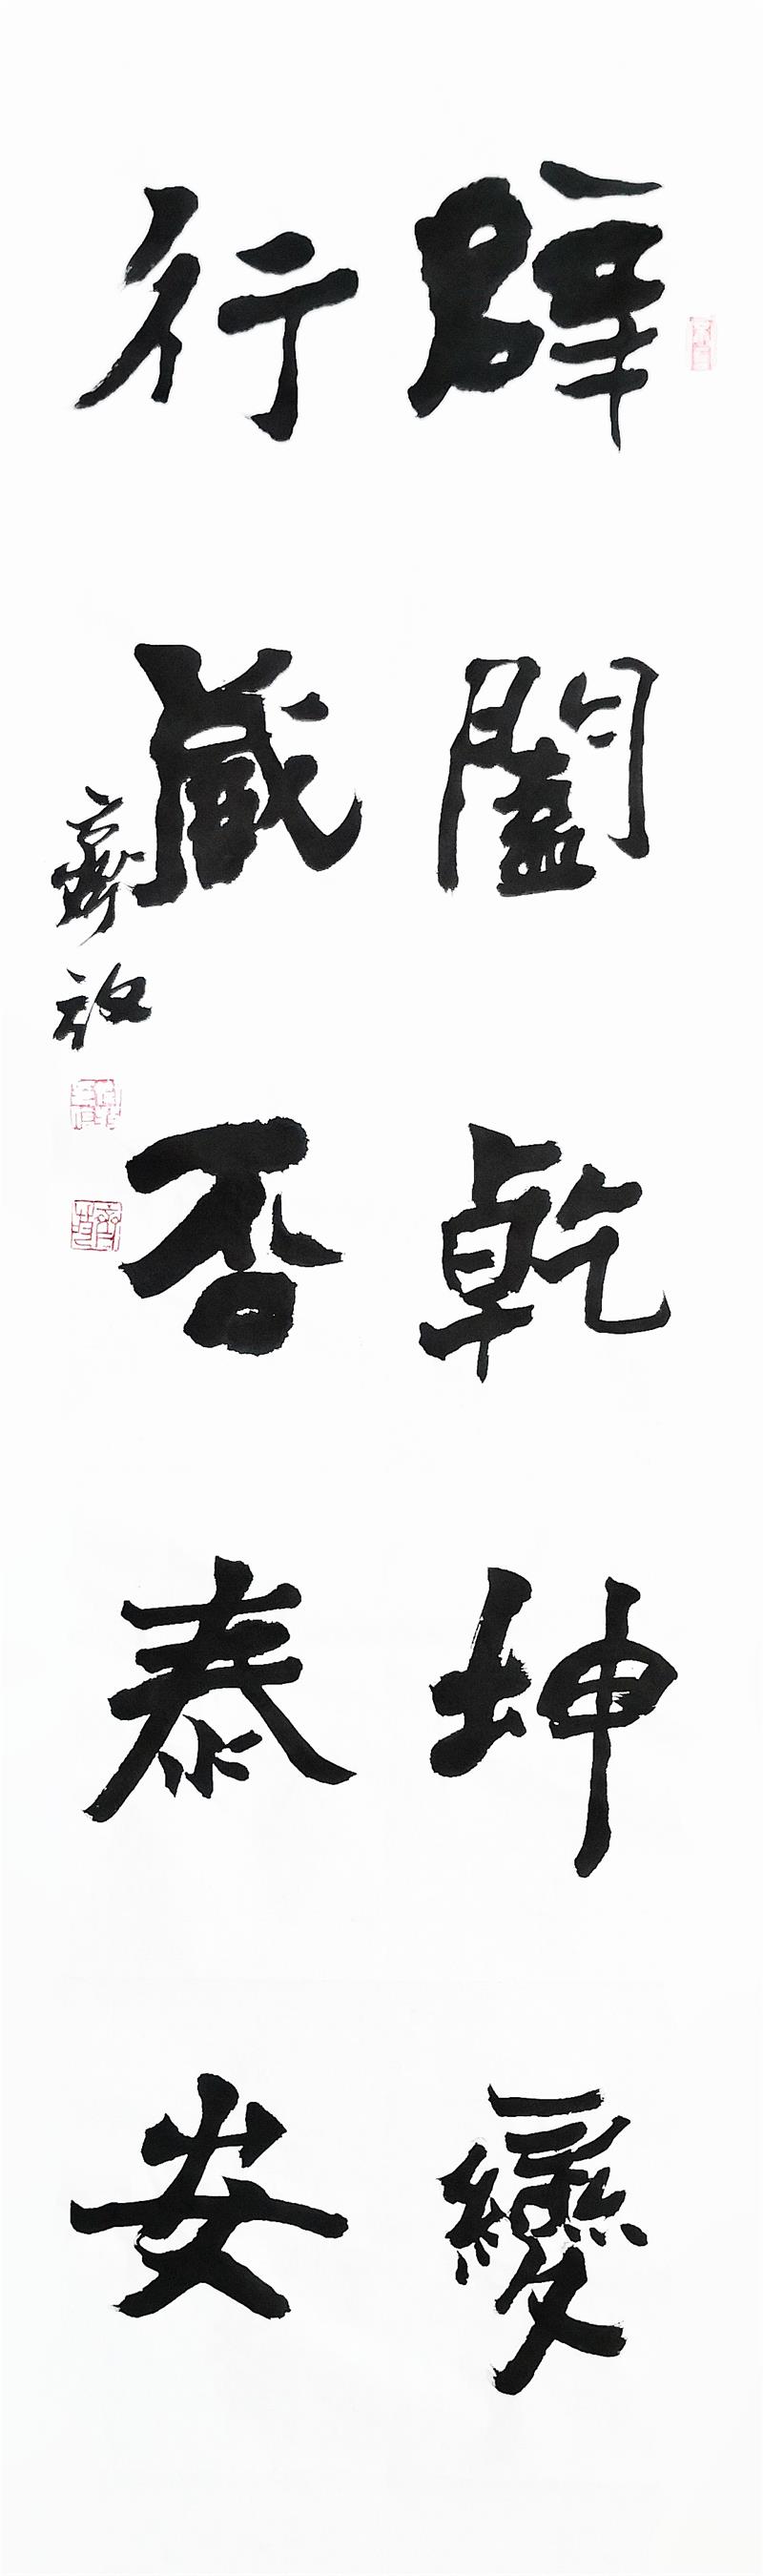 辟闔乾坤變
行藏否泰安
齊放